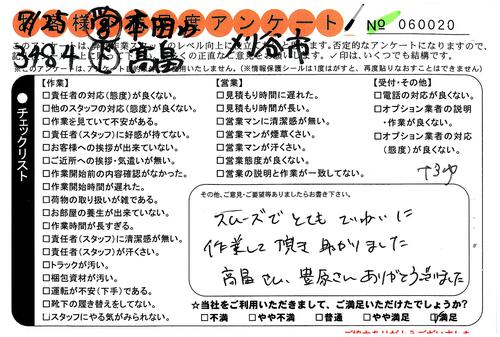 様 度アンケート № 060020
8/25 学 本田
3484 高畠 刈谷市
●チェックリスト
【作業】
□責任者の対応(態度)が良くない。
□他のスタッフの対応(態度)が良くない。
□作業を見ていて不安がある。
□責任者(スタッフ)に好感が持てない。
□お客様への挨拶が出来ていない。
□ご近所への挨拶・気遣いが無い。
□作業開始前の内容確認がなかった。
□作業開始時間が遅れた。
□荷物の取り扱いが雑である。
□お部屋の養生が出来ていない。
□作業時間が長すぎる。
□責任者(スタッフ)に清潔感が無い。
□責任者(スタッフ)が汗くさい。
□トラックが汚い。
□梱包資材が汚い。
□運転が不安(下手)である。
□靴下の履き替えをしてない。
□スタッフにやる気がみられない。
【営業】
□見積もり時間に遅れた。
□見積もり時間が長い。
□営業マンに清潔感が無い。
□営業マンが煙草くさい。
□営業マンが汗くさい。
□営業態度が良くない。
□営業の説明と作業が一致してない。
【受付・その他】
□電話の対応が良くない。
□オプション業者の説明
・作業が良くない。
□オプション業者の対応
(態度)が良くない。
その他、ご意見・ご要望等ありましたらお書き下さい。
スムーズでとても ていねいに
作業して頂き 助かりました
高畠さん、豊原さん ありがとう
★当社をご利用いただきまして、ご満足いただけたでしょうか?
□不満 □やや不満 □普通 □やや満足 □満足